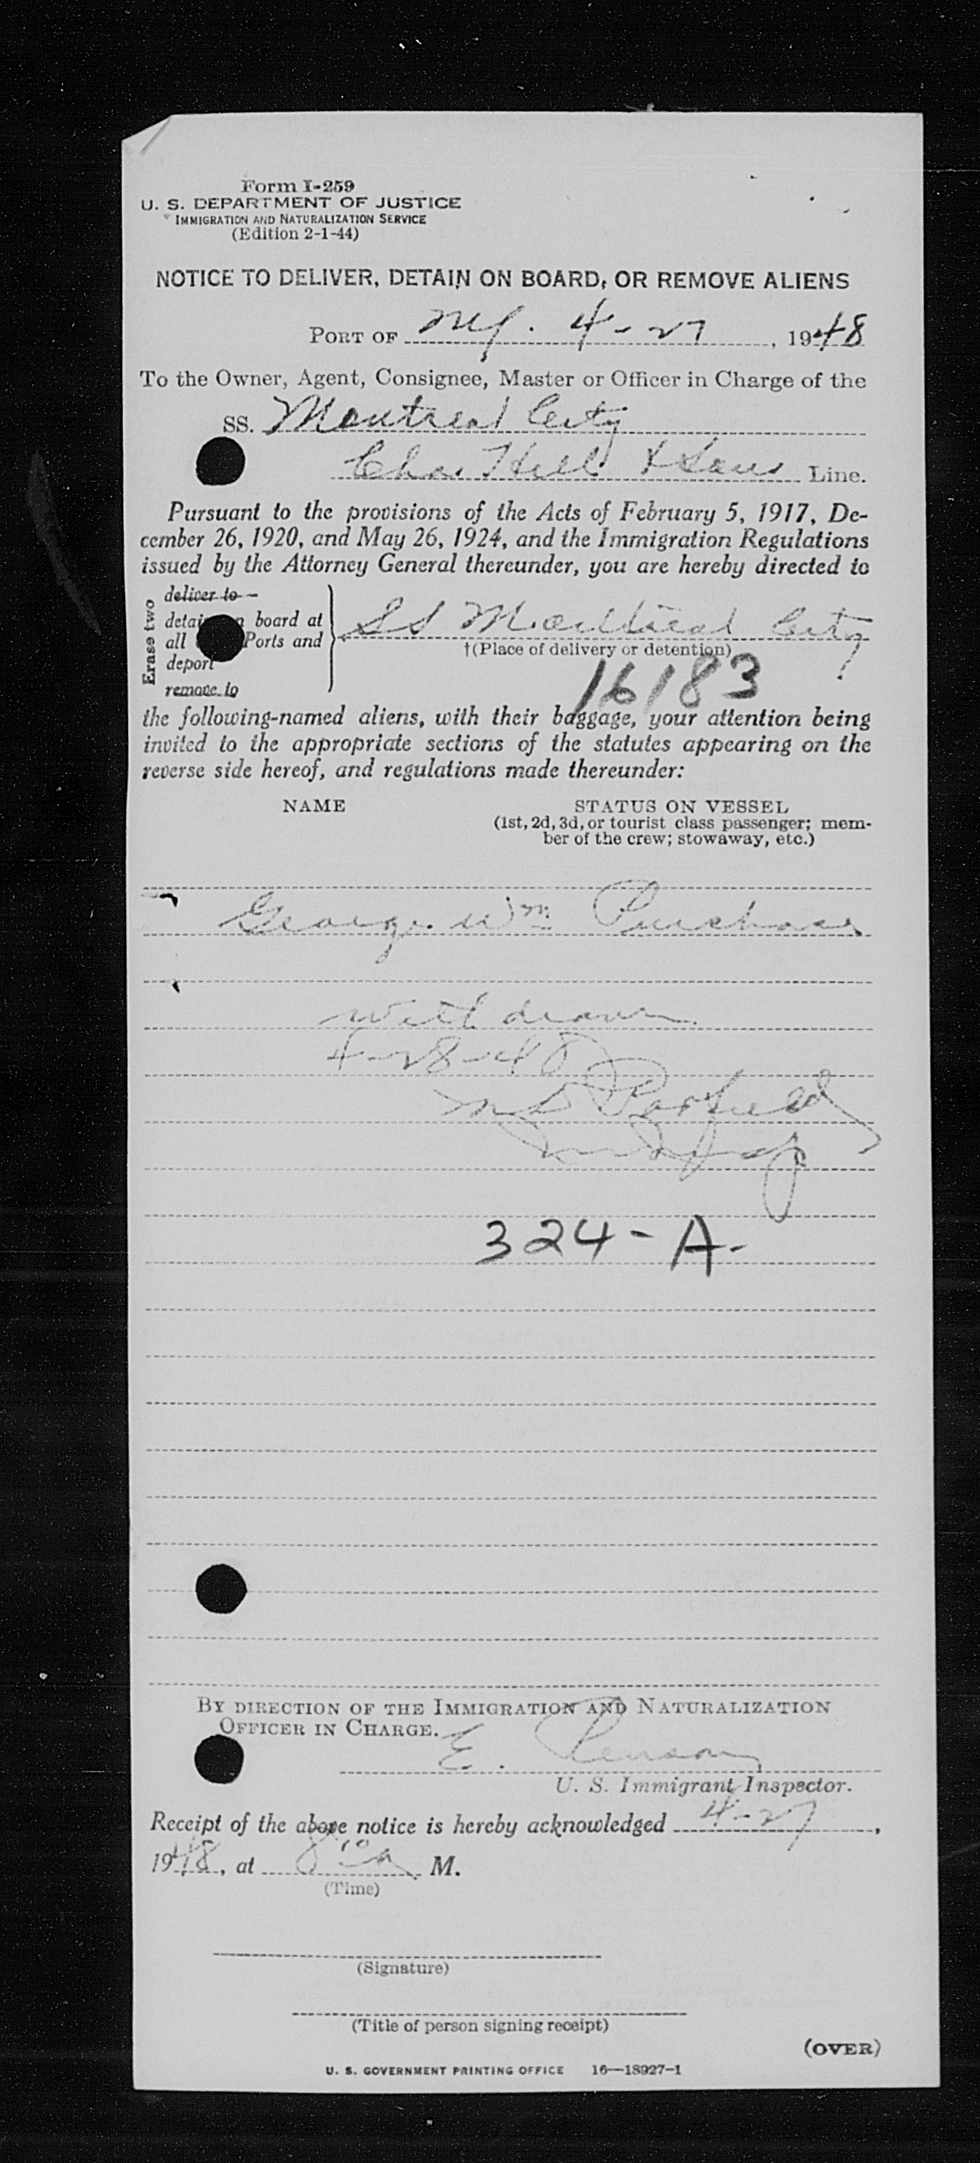 Form I-259
U. S. DEPARTMENT OF JUSTICE
IMMIGRATION AND NATURALIZATION SERVICE
(Edition 2-1-44)
NOTICE TO DELIVER, DETAIN ON BOARD, OR REMOVE ALIENS
PORT OF NY. 4-27, 1948
To the Owner, Agent, Consignee, Master or Officer in Charge of the
SS. Montreal City
Chas Hill & Sons Line.
Pursuant to the provisions of the Acts of February 5, 1917, De-
cember 26, 1920, and May 26, 1924, and the Immigration Regulations
issued by the Attorney General thereunder, you are hereby directed to
Erase two
deliver to
detain board at
all Ports and
deport
remove to
SS Montreal City
†(Place of delivery or detention)
16183
the following-named aliens, with their baggage, your attention being
invited to the appropriate sections of the statutes appearing on the
reverse side hereof, and regulations made thereunder:
NAME STATUS ON VESSEL
(1st, 2d, 3d, or tourist class passenger; mem-
ber of the crew; stowaway, etc.)
George Wm Purchase
Withdrawn
4-28-48
324-A.
BY DIRECTION OF THE IMMIGRATION AND NATURALIZATION
OFFICER IN CHARGE.
E.
U. S. Immigrant Inspector.
Receipt of the above notice is hereby acknowledged 4-27,
1948, at M.
(Time)
(Signature)
(Title of person signing receipt)
(OVER)
U. S. GOVERNMENT PRINTING OFFICE 16—18927-1